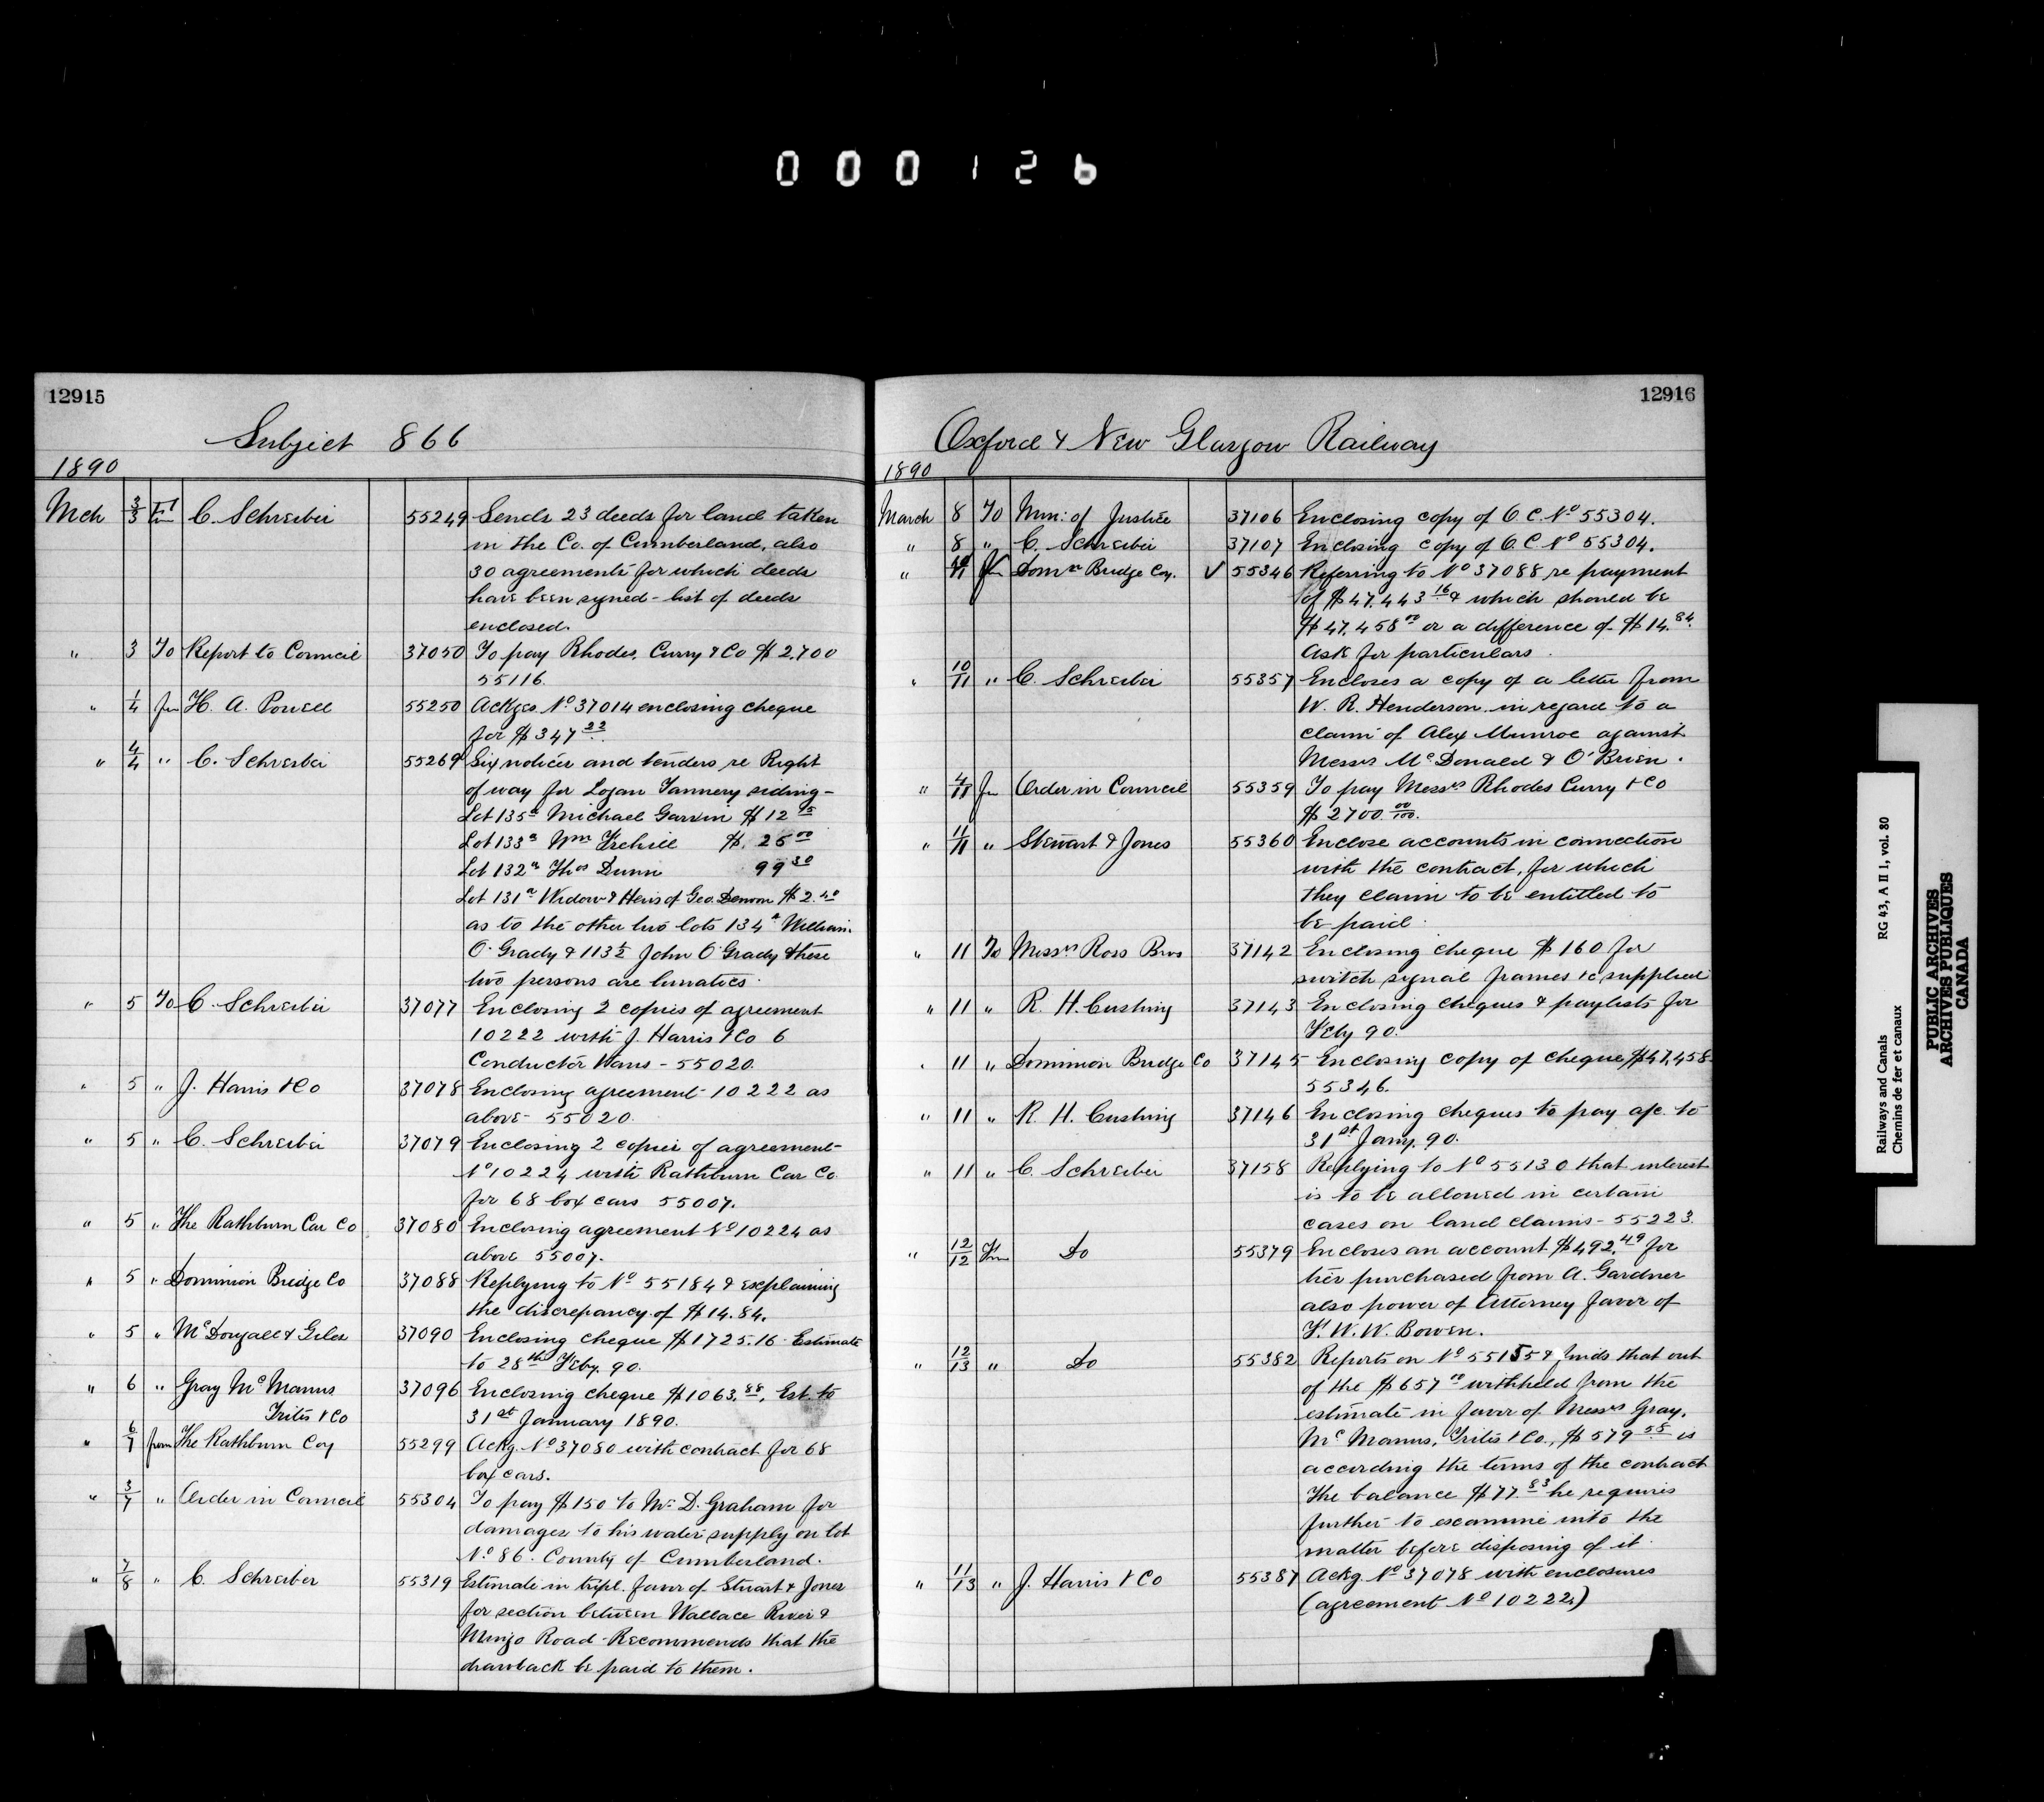 000126
12915
Subject 866
1890
Mch 3/3 Fm C. Schreiber 55249 Sends 23 deeds for land taken
in the Co. of Cumberland, also
30 agreements for which deeds
have been signed - list of deeds
enclosed.
" 3 To Report to Council 37050 To pay Rhodes, Curry & Co $2,700
55116.
" 1/4 fm H. A. Powell 55250 Ackges No 37014 enclosing cheque
for $347 22
" 4/4 " C. Schreiber 55269 Six notices and tenders re Right
of way for Logan Tannery siding -
Lot 135a Michael Garvin $12 95
Lot 133a Wm Trehill $ 25 00
Lot 132a Thos Dunn 99 30
Lot 131a Widow & Heirs of Geo. Denoon $2.40
as to the other two lots 134a William
O'Grady & 113½ John O'Grady these
two persons are lunatics.
" 5 To C. Schreiber 37077 Enclosing 2 copies of agreement
10222 with J. Harris & Co 6
Conductor Vans - 55020.
" 5 " J. Harris & Co 37078 Enclosing agreement 10222 as
above - 55020.
" 5 " C. Schreiber 37079 Enclosing 2 copies of agreement
No 10224 with Rathburn Car Co.
for 68 box cars 55007.
" 5 " The Rathburn Car Co 37080 Enclosing agreement No 10224 as
above 55007.
" 5 " Dominion Bridge Co 37088 Replying to No 55184 & explaining
the discrepancy of $14.84.
" 5 " McDougall & Giles 37090 Enclosing cheque $1725.16 Estimate
to 28th Feby. 90.
" 6 " Gray McManus 37096 Enclosing cheque $1063.88, Est. to
Trites & Co 31st January 1890.
" 6/7 from The Rathburn Coy 55299 Ackg. No 37080 with contract for 68
box cars.
" 3/7 " Order in Council 55304 To pay $150 to Mr. D. Graham for
damages to his water supply on lot
No. 86. County of Cumberland.
" 7/8 " C. Schreiber 55319 Estimate in tripl. favor of Stuart & Jones
for section between Wallace River &
Mingo Road - Recommends that the
drawback be paid to them.
12916
Oxford & New Glasgow Railway
1890
March 8 To Min: of Justice 37106 Enclosing copy of O.C. No 55304.
" 8 " C. Schreiber 37107 Enclosing copy of O.C. No 55304.
" 10/11 fm Domn Bridge Coy. ✓ 55346 Referring to No 37088 re payment
of $47,443 16 & which should be
$47,458 00 or a difference of $14.84.
Ask for particulars.
" 10/11 " C. Schreiber 55357 Encloses a copy of a letter from
W. R. Henderson in regard to a
claim of Alex Munroe against
Messrs McDonald & O'Brien.
" 4/11 fm Order in Council 55359 To pay Messrs Rhodes Curry & Co
$2700 00/100.
" 11/11 " Stewart & Jones 55360 Enclose accounts in connection
with the contract, for which
they claim to be entitled to
be paid.
" 11 To Messrs Ross Bros 37142 Enclosing cheque $160 for
switch signal frames &c, supplied
" 11 " R. H. Cushing 37143 Enclosing cheques & paylists for
Feby 90.
" 11 " Dominion Bridge Co 37145 Enclosing copy of cheque $47,458
55346.
" 11 " R. H. Cushing 37146 Enclosing cheques to pay a/c to
31st Jany. 90.
" 11 " C. Schreiber 37158 Replying to No 55130 that interest
is to be allowed in certain
cases on land claims - 55223.
" 12/12 Fm Do 55379 Encloses an account $492.49 for
ties purchased from A. Gardner
also power of Attorney favor of
F. W. W. Bowen.
" 12/13 " Do 55382 Reports on No 55155 & finds that out
of the $657 withheld from the
estimate in favor of Messrs Gray,
McManus, Trites & Co., $579 55 is
according the terms of the contract
The balance $77.83 he requires
further to examine into the
matter before disposing of it.
" 11/13 " J. Harris & Co 55387 Ackg. No 37078 with enclosures
(agreement No 10222)
Railways and Canals RG 43, A II 1, vol. 80
Chemins de fer et canaux
PUBLIC ARCHIVES
ARCHIVES PUBLIQUES
CANADA